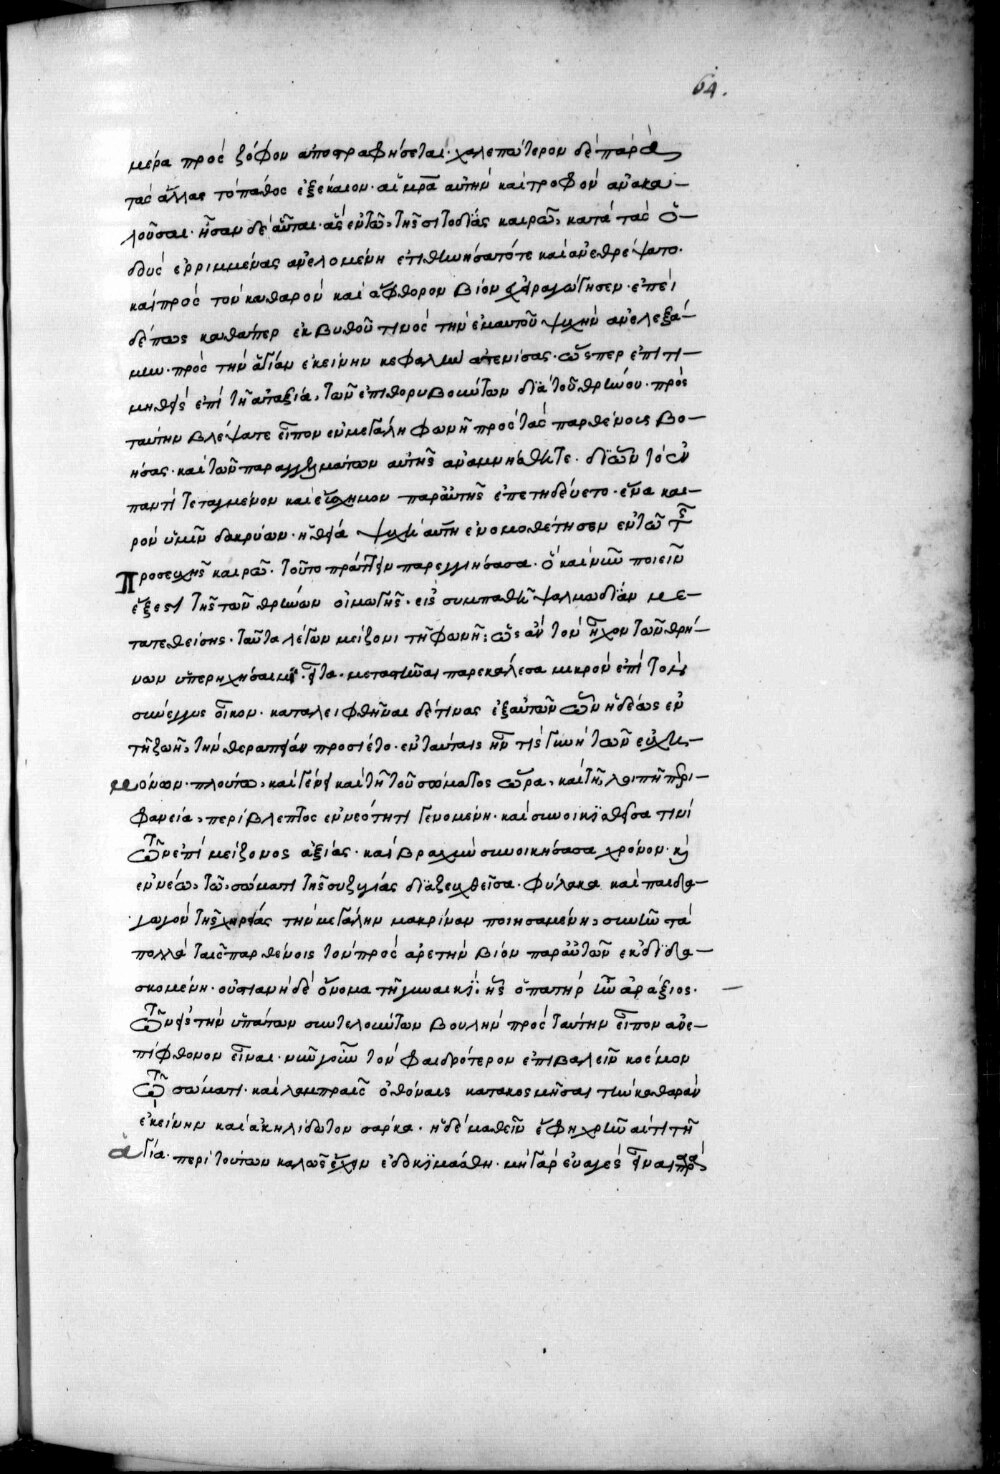 64.
μέρα πρὸς ζόφον ἀποστραφήσεται· χαλεπώτερον δὲ παρὰ
τὰς ἄλλας τὸ πάθος ἐξέκαιον· αἱ μρ̅α αὐτὴν καὶ τροφὸν ἀνακα-
λοῦσαι· ἦσαν δὲ αὗται· ἃς ἐν τῶ τῆς σιτοδίας καιρῶ, κατὰ τὰς ὁ-
δοὺς ἐρριμμένας ἀνελομένη ἐτιθηνήσατό τε καὶ ἀνεθρέψατο·
καὶ πρὸς τὸν καθαρὸν καὶ ἄφθορον βίον ἐχειραγώγησεν· ἐπεὶ
δέ πως καθάπερ ἐκ βυθοῦ τινὸς τὴν ἐμαυτοῦ ψυχὴν ἀνελεξά-
μην· πρὸς τὴν ἁγίαν ἐκείνην κεφαλὴν ἀτενίσας· ὥσπερ ἐπιτι-
μηθεὶς ἐπὶ τῆ ἀταξία, τῶν ἐπιθορυβούντων διὰ τοῦ θρήνου· πρὸς
ταύτην βλέψατε εἶπον ἐν μεγάλη φωνῆ πρὸς τὰς παρθένους βο-
ήσας· καὶ τῶν παραγγελμάτων αὐτῆς ἀναμνήσθητε· δι' ὧν τὸ ἐν
παντὶ τεταγμένον καὶ εὔσχημον παρ' αὐτῆς ἐπετηδεύετο· ἕνα και-
ρὸν ὑμῖν δακρύων· ἡ θεία ψυχὴ αὕτη ἐνομοθέτησεν ἐν τῶ τῆς
προσευχῆς καιρῶ· τοῦτο πράττειν παρεγγυήσασα· ὃ καὶ νῦν ποιεῖν
ἔξεστι τῆς τῶν θρήνων οἰμωγῆς· εἰς συμπαθῆ ψαλμωδίαν με-
τατεθείσης· ταῦτα λέγων μείζονι τῆ φωνῆ· ὡς ἂν τὸν ἦχον τῶν θρή-
νων ὑπερηχήσαιμι· εἶτα· μεταστῆναι παρεκάλεσα μικρὸν ἐπὶ τὸν
σύνεγγυς οἶκον· καταλειφθῆναι δέ τινας ἐξ αὐτῶν ὧν ἡδέως ἐν
τῆ ζωῆ, τὴν θεραπείαν προσίετο· ἐν ταύταις ἦν τις γυνὴ τῶν εὐσχη-
μόνων· πλούτω, καὶ γένει καὶ τῆ τοῦ σώματος ὥρα, καὶ τῆ λοιπῆ περι-
φανεία, περίβλεπτος ἐν νεότητι γενομένη· καὶ συνοικισθεῖσά τινι
τῶν ἐπὶ μείζονος ἀξίας· καὶ βραχὺν συνοικήσασα χρόνον· κ
ἐν νέω, τῶ, σώματι τῆς συζυγίας διαζευχθεῖσα· φύλακα καὶ παιδα-
γωγὸν τῆς χηρείας τὴν μεγάλην μακρίναν ποιησαμένη, συνῆν τὰ
πολλὰ ταῖς παρθένοις τὸν πρὸς ἀρετὴν βίον παρ' αὐτῶν ἐκδιδα-
σκομένη· οὐστιανὴ δὲ ὄνομα τῆ γυναικί· ἧς ὁ πατὴρ ἦν ἀράξιος·
τῶν εἰς τὴν ὑπάτων συντελούντων βουλὴν πρὸς ταύτην εἶπον ἀνε-
πίφθονον εἶναι· νῦν γοῦν τὸν φαιδρότερον ἐπιβαλεῖν κόσμον
τῶ σώματι· καὶ λαμπραῖς ὀθόναις κατακοσμῆσαι τὴν καθαρὰν
ἐκείνην καὶ ἀκηλίδωτον σάρκα· ἡ δὲ μαθεῖν ἔφη χρῆναι τί τῆ
ἁγία· περὶ τούτων καλῶς ἔχειν ἐδοκιμάσθη· μὴ γὰρ εὐαγὲς εἶναι παρὰ